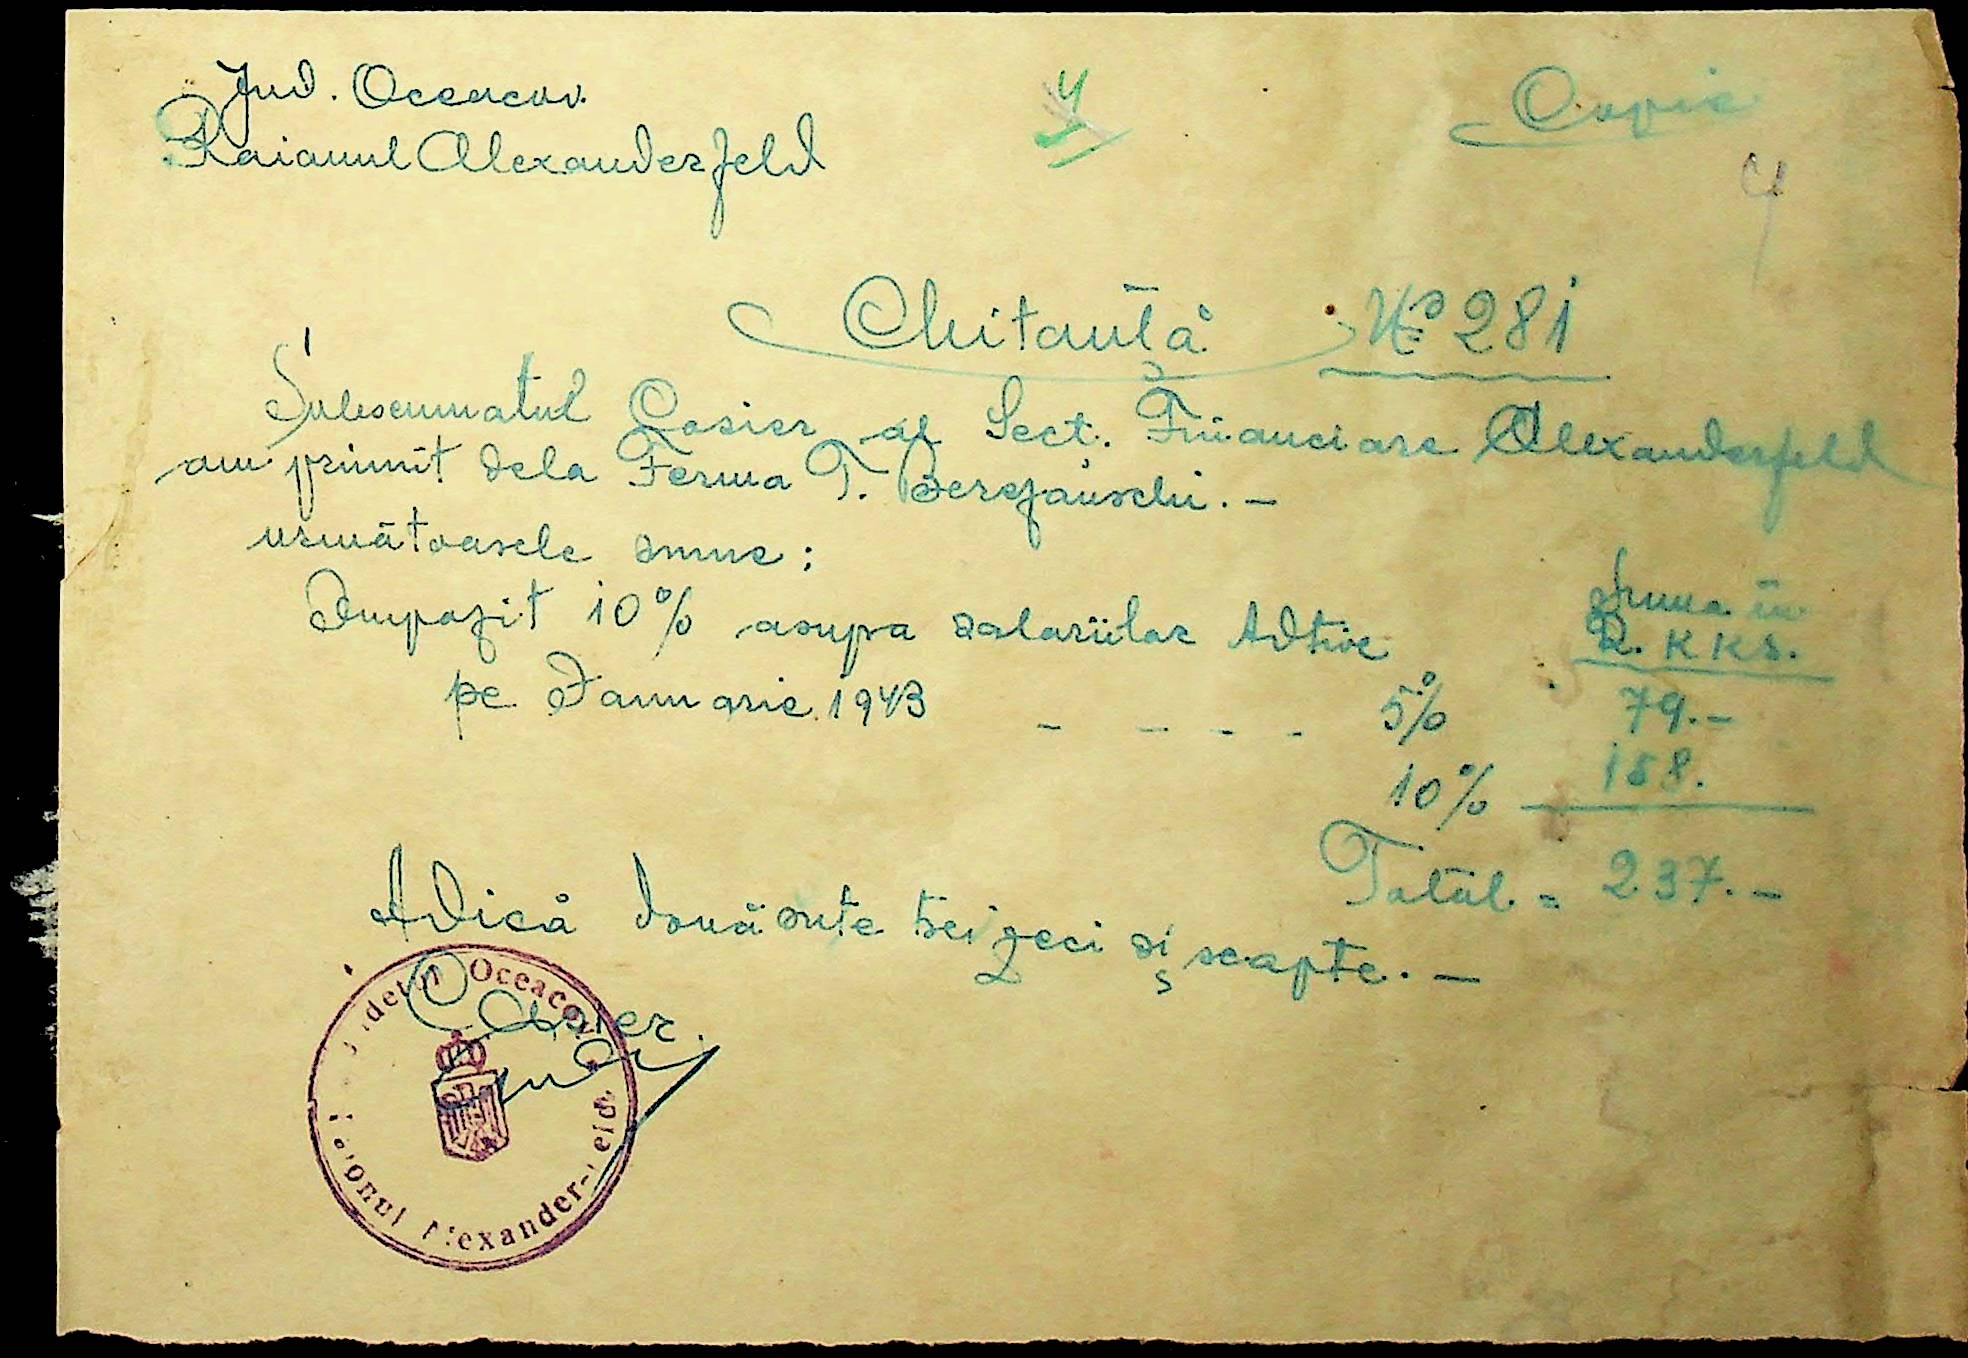 Jud. Oceacov.
Raionul Alexanderfeld
Copie
4
Chitanță № 281
Subsemnatul Casier al Sect. Financiare Alexanderfeld
am primit dela Ferma T.
următoarele sume:
Suma în
R. K K S.
Impozit 10% asupra salariilor
pe Ianuarie 1943 - - - - 5% 79.-
10% 158.
Total = 237.-
Adică două sute trei zeci și șeapte. -
Casier.
Județul Oceacov
Raionul Alexander-feld